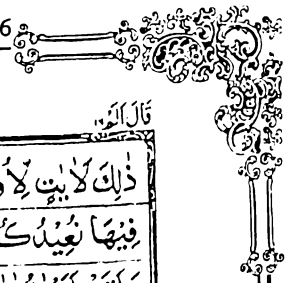 6
قَالَ اَلَمْ
ذٰلِكَ لَاٰيٰتٍ لِّاُو
فِيْهَا نُعِيْدُكُ